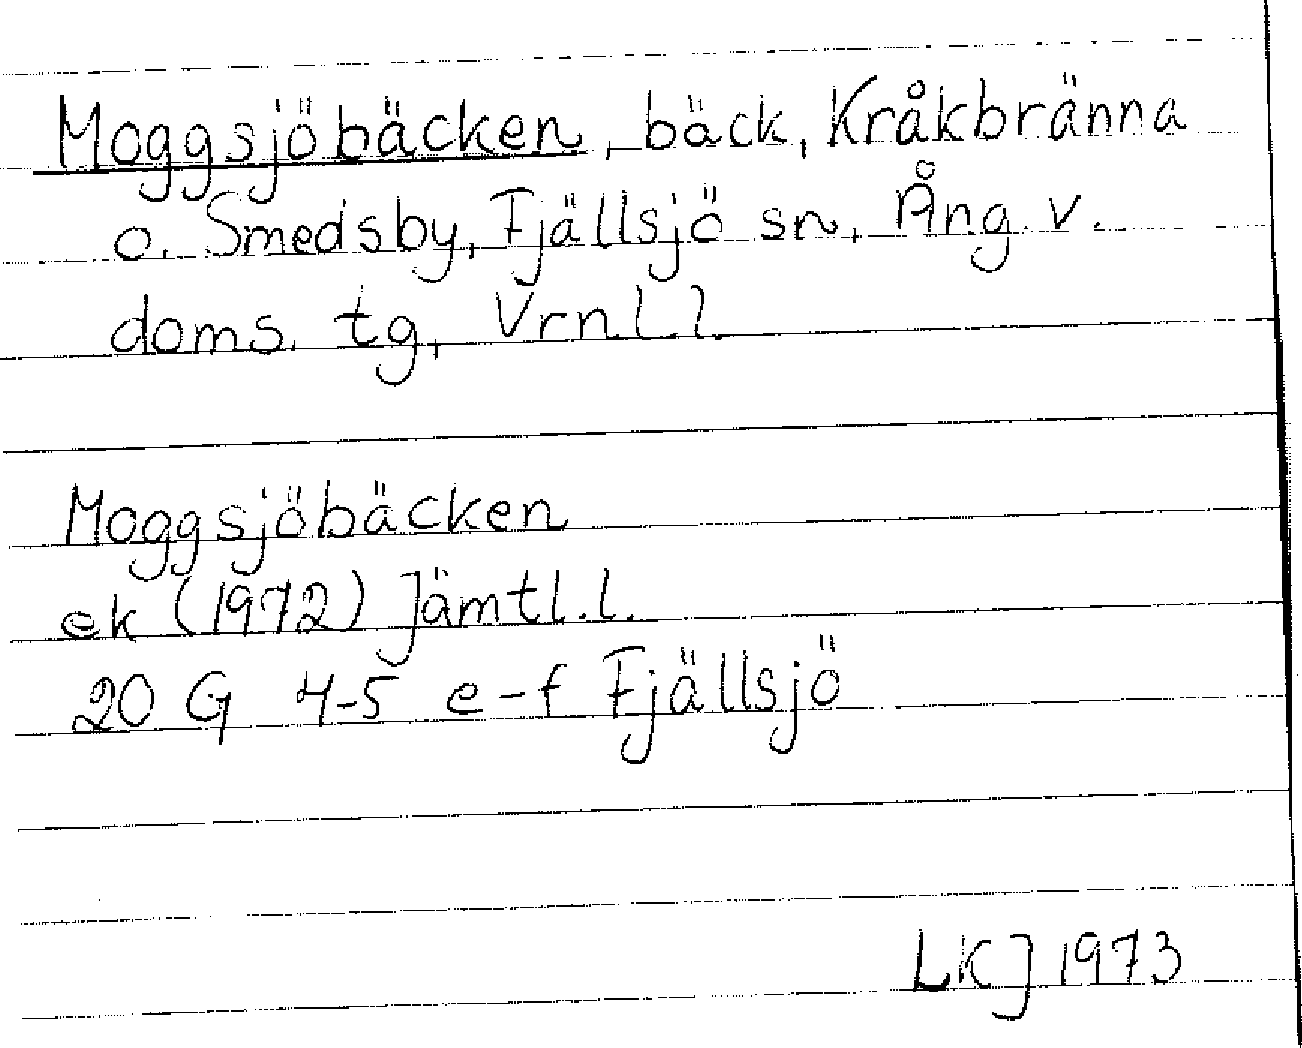 Moggsjöbäcken, bäck, Kråkbränna
o. Smedsby, Fjällsjö sn, Ång. v.
doms. tg, Vrnl l.
Moggsjöbäcken
ek (1972) Jämtl. l.
20 G 4-5 e-f Fjällsjö
LKJ 1973